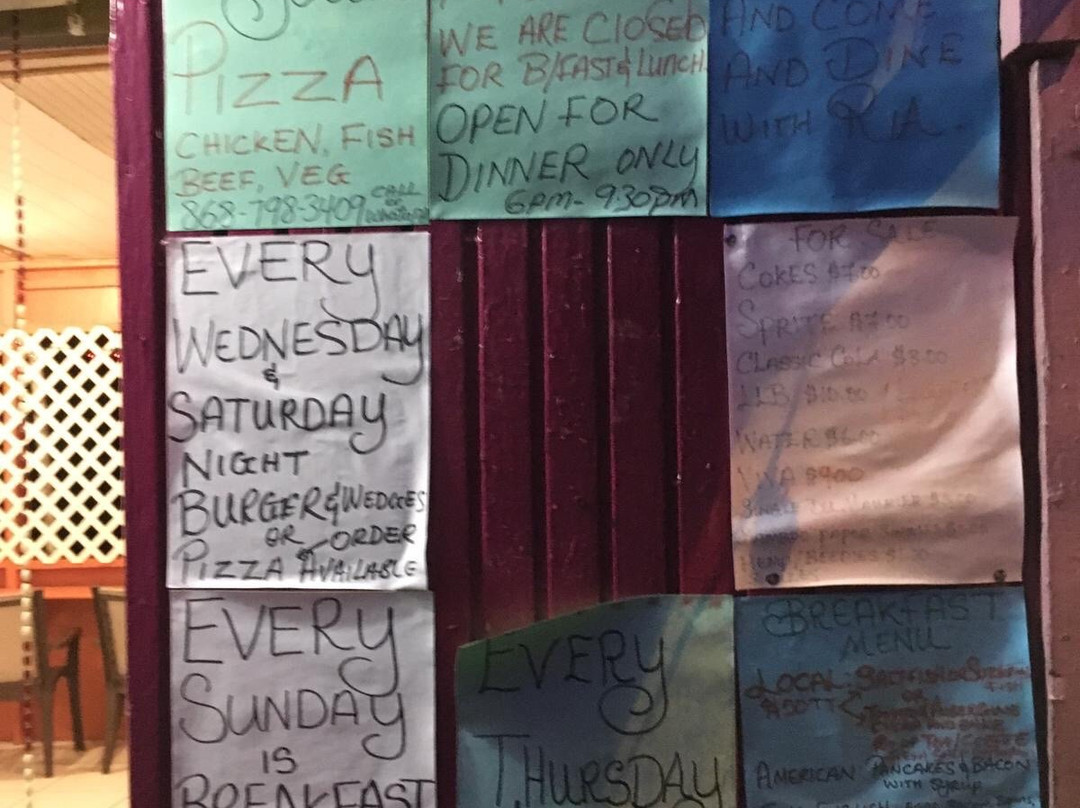 PIZZA
CHICKEN, FISH
BEEF, VEG
868-798-3409 CALL
or
WhatsApp
WE ARE CLOSED
FOR B/FAST & LUNCH
OPEN FOR
DINNER ONLY
6PM- 9:30pm
AND COME
AND DINE
WITH RIA.
EVERY
WEDNESDAY
&
SATURDAY
NIGHT
BURGER & WEDGES
OR ORDER
PIZZA AVAILABLE
FOR SALE
COKES $7.00
SPRITE $7.00
CLASSIC COLA $8.00
LLB $10.00
WATER $6.00
EVERY
SUNDAY
IS
BREAKFAST
EVERY
THURSDAY
BREAKFAST
MENU
LOCAL: SALTFISH OR
$50TT
OR
AMERICAN PANCAKES & BACON
WITH SYRUP